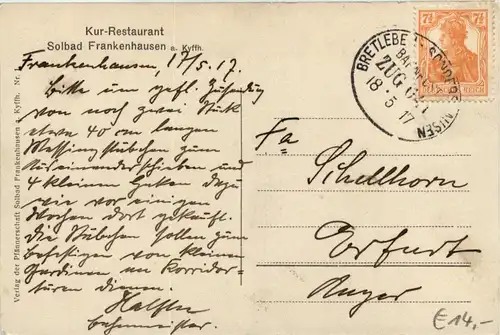 Kur-Restaurant
Solbad Frankenhausen a. Kyffh.
Frankenhausen, 17/5. 17.
Bitte um gefl. Zusendung
von noch zwei Stück
etwa 40 cm langen
Messing stäbchen zum
und
4 kleinen Haken dazu
wie vor einigen
Wochen dort gekauft.
Die Stäbchen sollen zum
befestigen von kleinen
Gardinen an Korridor-
türen dienen.
Verlag der Pfännerschaft Solbad Frankenhausen a. Kyffh. Nr.
BRETLEBEN SONDERSHAUSEN
BAHNPOST
ZUG
18 5 17
7½ 7½
REICH
Fa
Schellhorn
Erfurt
Anger
€14,-